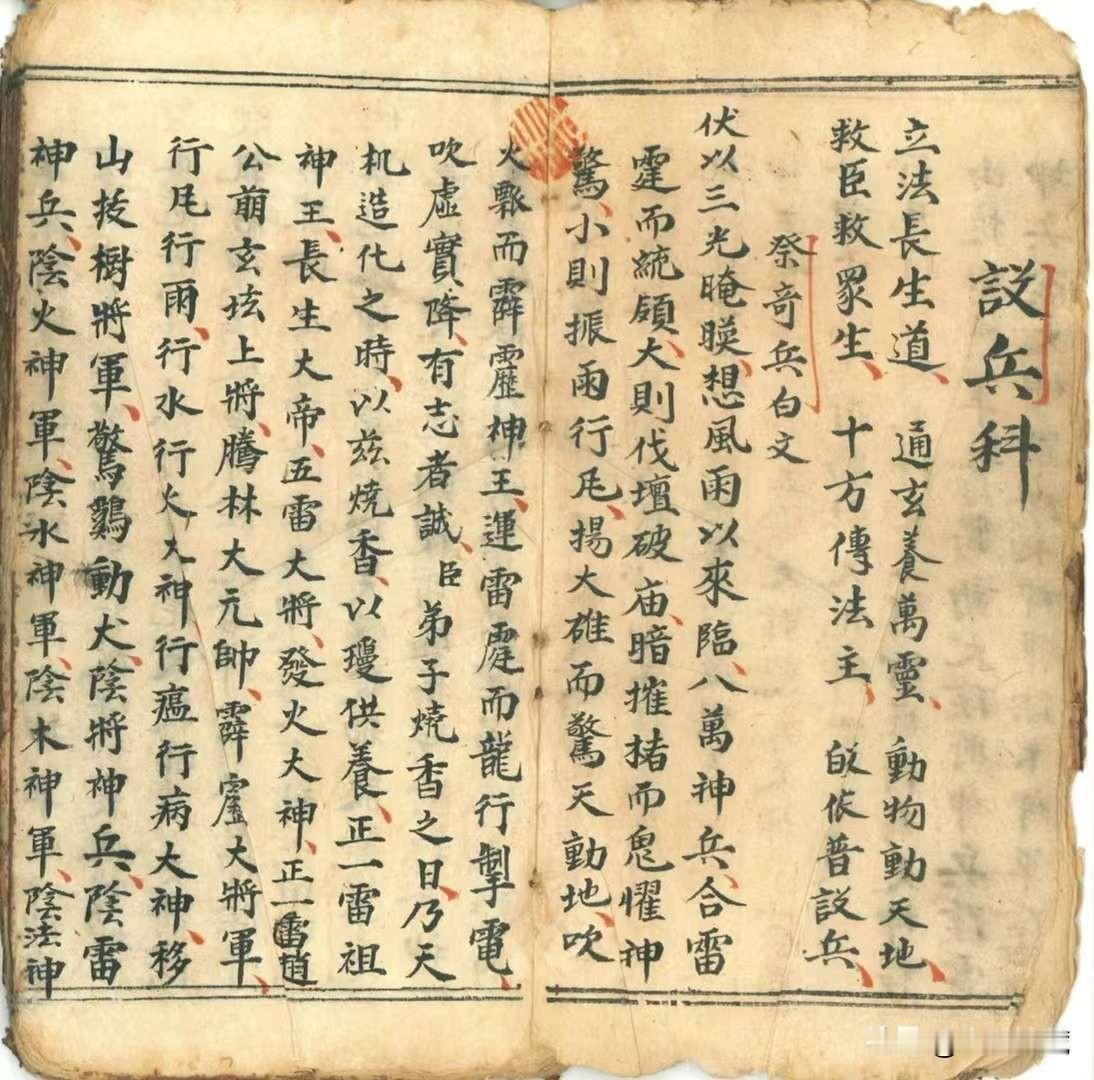 設兵科
立法長生道、通玄養萬靈、動物動天地、
救臣救眾生、十方傳法主、皈依普設兵、
祭奇兵白文
伏以三光晻暎、想風雨以來臨、八萬神兵、合雷
霆而統領、大則伐壇破庙、暗摧[…]而鬼懼神
驚、小則振雨行[…]、揚大碓而驚天動地、吹
火[…]而霹靂神王、運雷霆而龍行掣電、
吹虛實降、有志者誠、臣弟子燒香之日、乃天
机造化之時、以兹燒香、以瓊供養、正一雷祖
神王、長生大帝、五雷大將、發火大神、正一雷趙
公崩玄坛上將、騰林大元帥、霹[…]大將軍、
行[…]行雨、行水行火大神行瘟行病大神、移
山拔樹將軍、驚鷄動犬、陰將神兵、陰雷
神兵、陰火神軍、陰水神軍、陰木神軍、陰法神